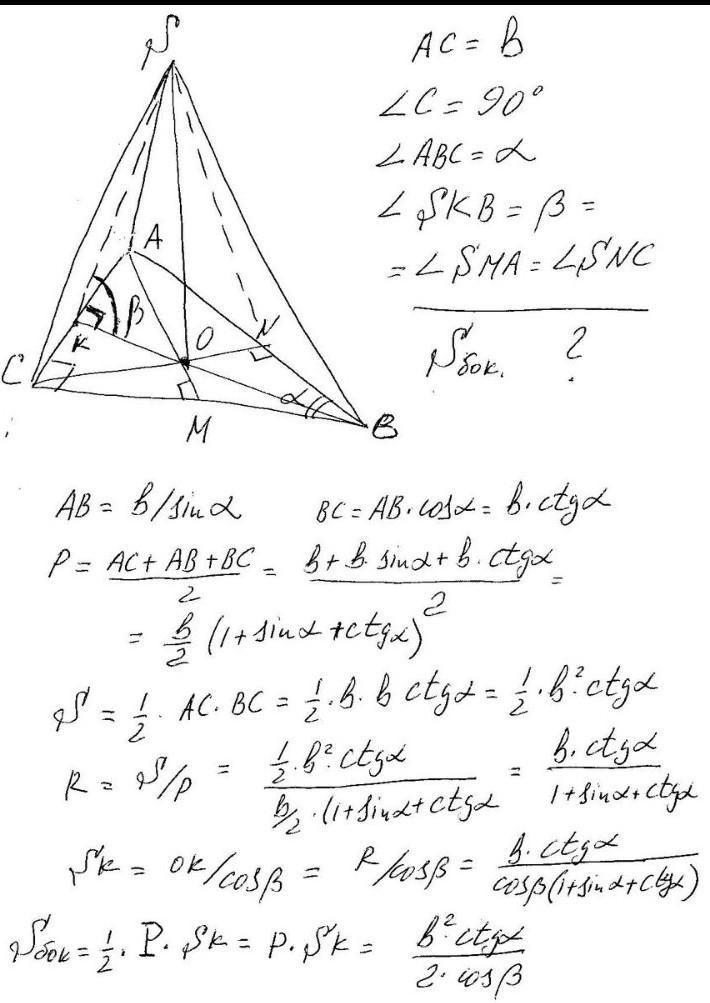 S
A
K
β
O
N
C
α
M
B
AC = b
∠C = 90°
∠ABC = α
∠SKB = β =
= ∠SMA = ∠SNC
Sбок. ?
AB = b/sinα BC = AB·cosα = b·ctgα
P = (AC + AB + BC)/2 = (b + b·sinα + b·ctgα)/2 =
= b/2 (1 + sinα + ctgα)
S = 1/2 · AC·BC = 1/2·b·b ctgα = 1/2·b²·ctgα
R = S/p = (1/2·b²·ctgα)/(b/2·(1+sinα+ctgα) = b·ctgα/(1+sinα+ctgα
SK = OK/cosβ = R/cosβ = b·ctgα/(cosβ(1+sinα+ctgα))
Sбок = 1/2·P·SK = p·SK = b²·ctgα/(2·cosβ)